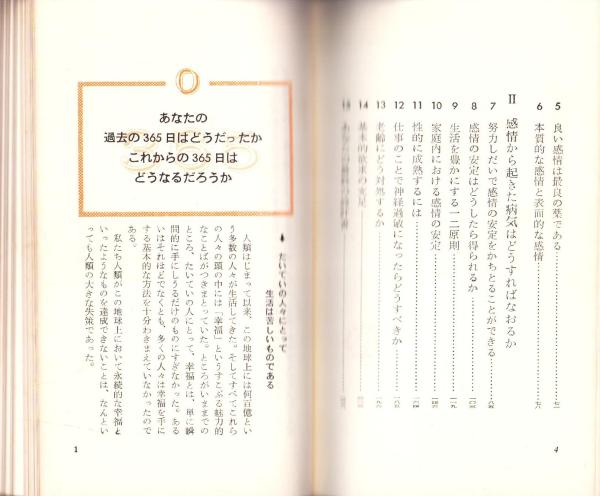 5 良い感情は最良の薬である
6 本質的な感情と表面的な感情
II 感情から起きた病気はどうすればなおるか
7 努力しだいで感情の安定をかちとることができる
8 感情の安定はどうしたら得られるか
9 生活を豊かにする一二原則
10 家庭内における感情の安定
11 性的に成熟するには
12 仕事のことで神経過敏になったらどうすべきか
13 老齢にどう対処するか
14 基本的欲求の充足
15
4
0
あなたの
過去の365日はどうだったか
これからの365日は
どうなるだろうか
365
たいていの人々にとって
生活は苦しいものである
人類はじまって以来、この地球上には何百億とい
う多数の人々が生活してきた。そしてすべてこれら
の人々の頭の中には「幸福」というすこぶる魅力的
なことばがつきまとっていた。ところがいままでの
ところ、たいていの人にとって、幸福とは、単に瞬
間的に手にしうるだけのものにすぎなかった。ある
いはそれほどでなくとも、多くの人々は幸福を手に
する基本的な方法を十分わきまえていなかったので
ある。
私たち人類がこの地球上において永続的な幸福と
いったようなものを達成できないことは、なんとい
っても人類の大きな失策であった。
1